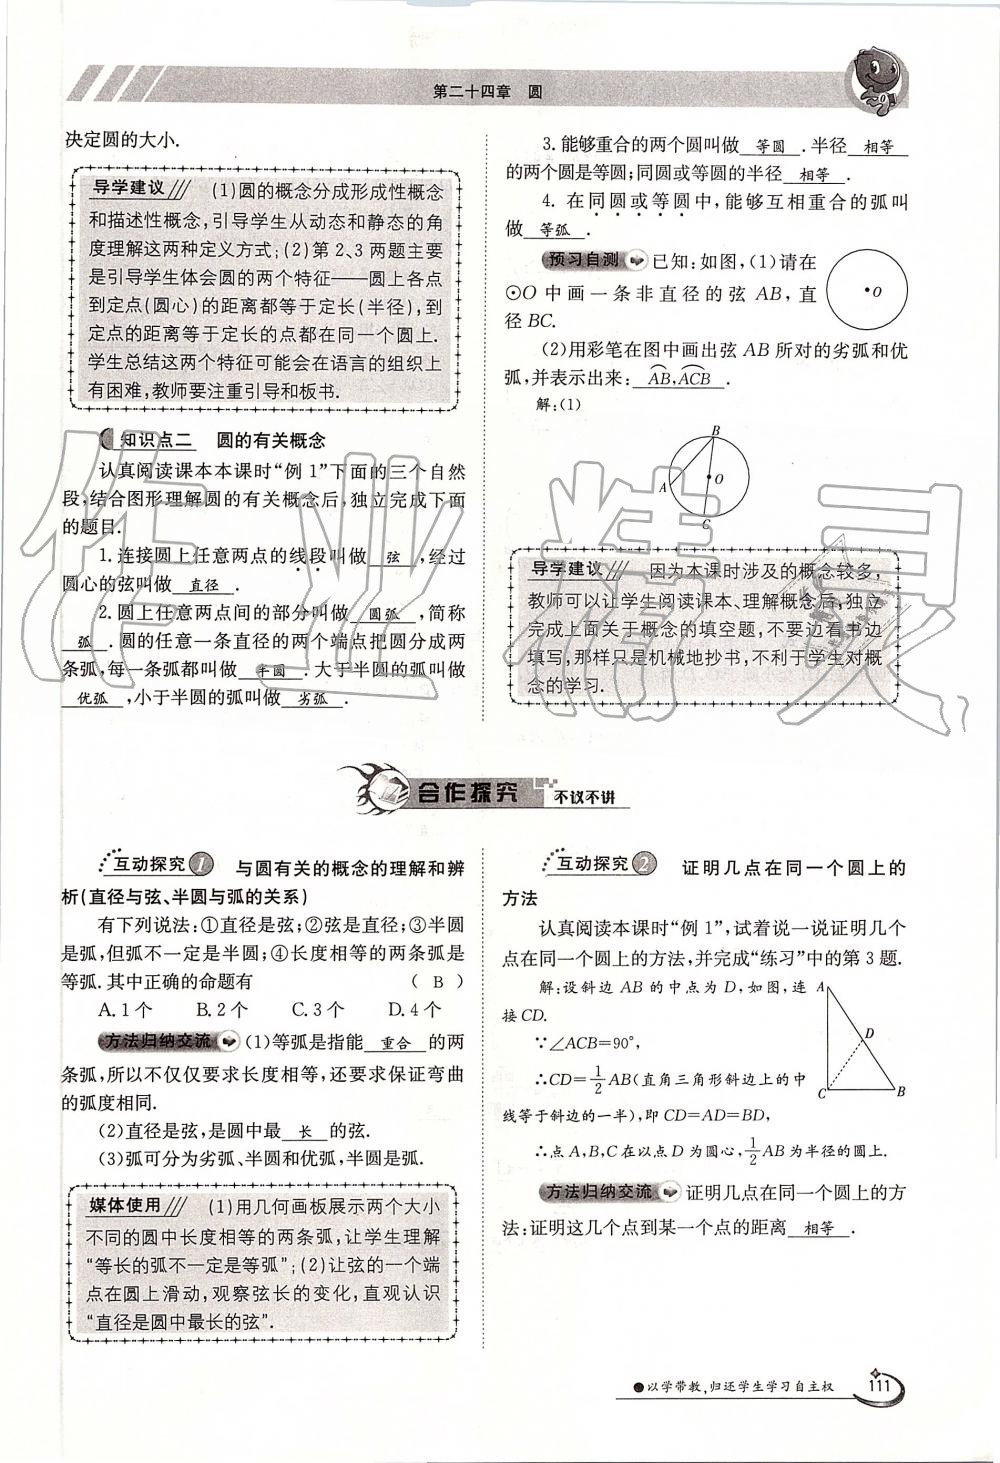 第二十四章 圆
决定圆的大小.
导学建议 (1)圆的概念分成形成性概念
和描述性概念,引导学生从动态和静态的角
度理解这两种定义方式;(2)第2、3两题主要
是引导学生体会圆的两个特征——圆上各点
到定点(圆心)的距离都等于定长(半径),到
定点的距离等于定长的点都在同一个圆上.
学生总结这两个特征可能会在语言的组织上
有困难,教师要注重引导和板书.
知识点二 圆的有关概念
认真阅读课本本课时“例1”下面的三个自然
段,结合图形理解圆的有关概念后,独立完成下面
的题目.
1.连接圆上任意两点的线段叫做 弦 ,经过
圆心的弦叫做 直径 .
2.圆上任意两点间的部分叫做 圆弧 ,简称
弧 .圆的任意一条直径的两个端点把圆分成两
条弧,每一条弧都叫做 半圆 .大于半圆的弧叫做
优弧 ,小于半圆的弧叫做 劣弧 .
3.能够重合的两个圆叫做 等圆 .半径 相等
的两个圆是等圆;同圆或等圆的半径 相等 .
4.在同圆或等圆中,能够互相重合的弧叫
做 等弧 .
预习自测 已知:如图,(1)请在
⊙O中画一条非直径的弦AB,直
径BC.
O
(2)用彩笔在图中画出弦AB所对的劣弧和优
弧,并表示出来: AB,ACB .
解:(1)
B
O
A
C
导学建议 因为本课时涉及的概念较多,
教师可以让学生阅读课本、理解概念后,独立
完成上面关于概念的填空题,不要边看书边
填写,那样只是机械地抄书,不利于学生对概
念的学习.
作业精灵
合作探究 不议不讲
互动探究1 与圆有关的概念的理解和辨
析(直径与弦、半圆与弧的关系)
有下列说法:①直径是弦;②弦是直径;③半圆
是弧,但弧不一定是半圆;④长度相等的两条弧是
等弧.其中正确的命题有 ( B )
A.1个 B.2个 C.3个 D.4个
方法归纳交流 (1)等弧是指能 重合 的两
条弧,所以不仅仅要求长度相等,还要求保证弯曲
的弧度相同.
(2)直径是弦,是圆中最 长 的弦.
(3)弧可分为劣弧、半圆和优弧,半圆是弧.
媒体使用 (1)用几何画板展示两个大小
不同的圆中长度相等的两条弧,让学生理解
“等长的弧不一定是等弧”;(2)让弦的一个端
点在圆上滑动,观察弦长的变化,直观认识
“直径是圆中最长的弦”.
互动探究2 证明几点在同一个圆上的
方法
认真阅读本课时“例1”,试着说一说证明几个
点在同一个圆上的方法,并完成“练习”中的第3题.
解:设斜边AB的中点为D,如图,连
接CD.
∵∠ACB=90°,
∴CD=1/2AB(直角三角形斜边上的中
线等于斜边的一半),即CD=AD=BD,
∴点A,B,C在以点D为圆心,1/2AB为半径的圆上.
A
D
C
B
方法归纳交流 证明几点在同一个圆上的方
法:证明这几个点到某一个点的距离 相等 .
●以学带教,归还学生学习自主权
111